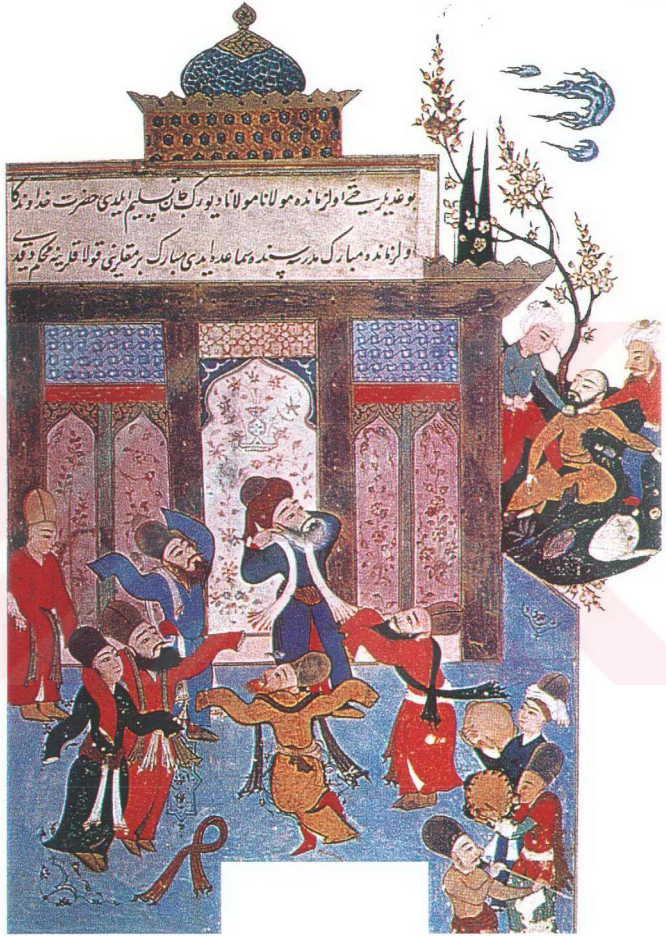 بو غدیلر یتے اولزمانده مولانا مولانا دیورك جان تسلیم ایلدی حضرت خداوندكا
اولزمانده مبارك مدرسه سنده سماعده ایدی مبارك برمقلرینی قولاقلرینه محكم دیقدی